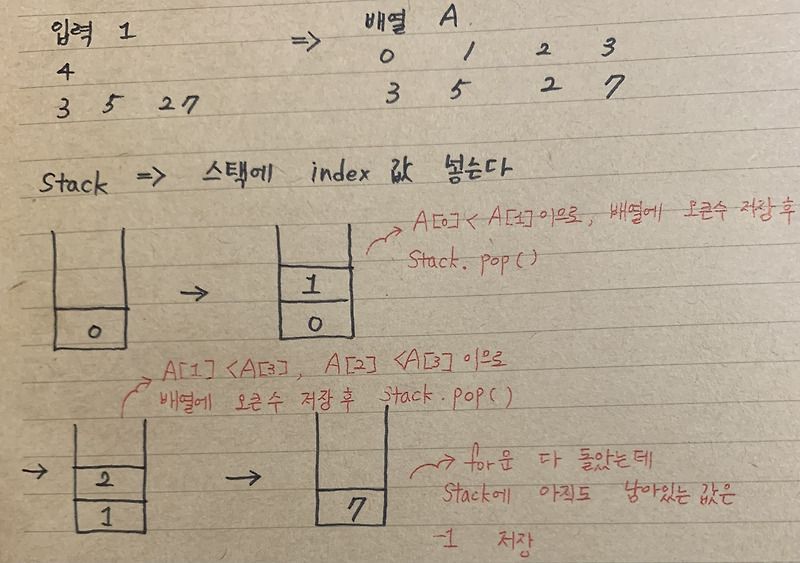 입력 1
4
3 5 2 7
=> 배열 A.
0 1 2 3
3 5 2 7
Stack => 스택에 index 값 넣는다
0
→
1
0
→ A[0] < A[1] 이므로, 배열에 오큰수 저장 후
Stack. pop()
→ A[1] < A[3], A[2] < A[3] 이므로
배열에 오큰수 저장 후 Stack.pop()
→
2
1
→
7
→ for문 다 돌았는데
Stack에 아직도 남아있는 값은
-1 저장